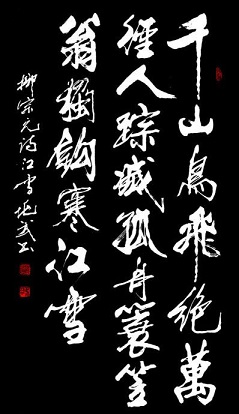 千山鳥飛絕萬
徑人踪滅孤舟簑笠
翁獨釣寒江雪
柳宗元詩江雪